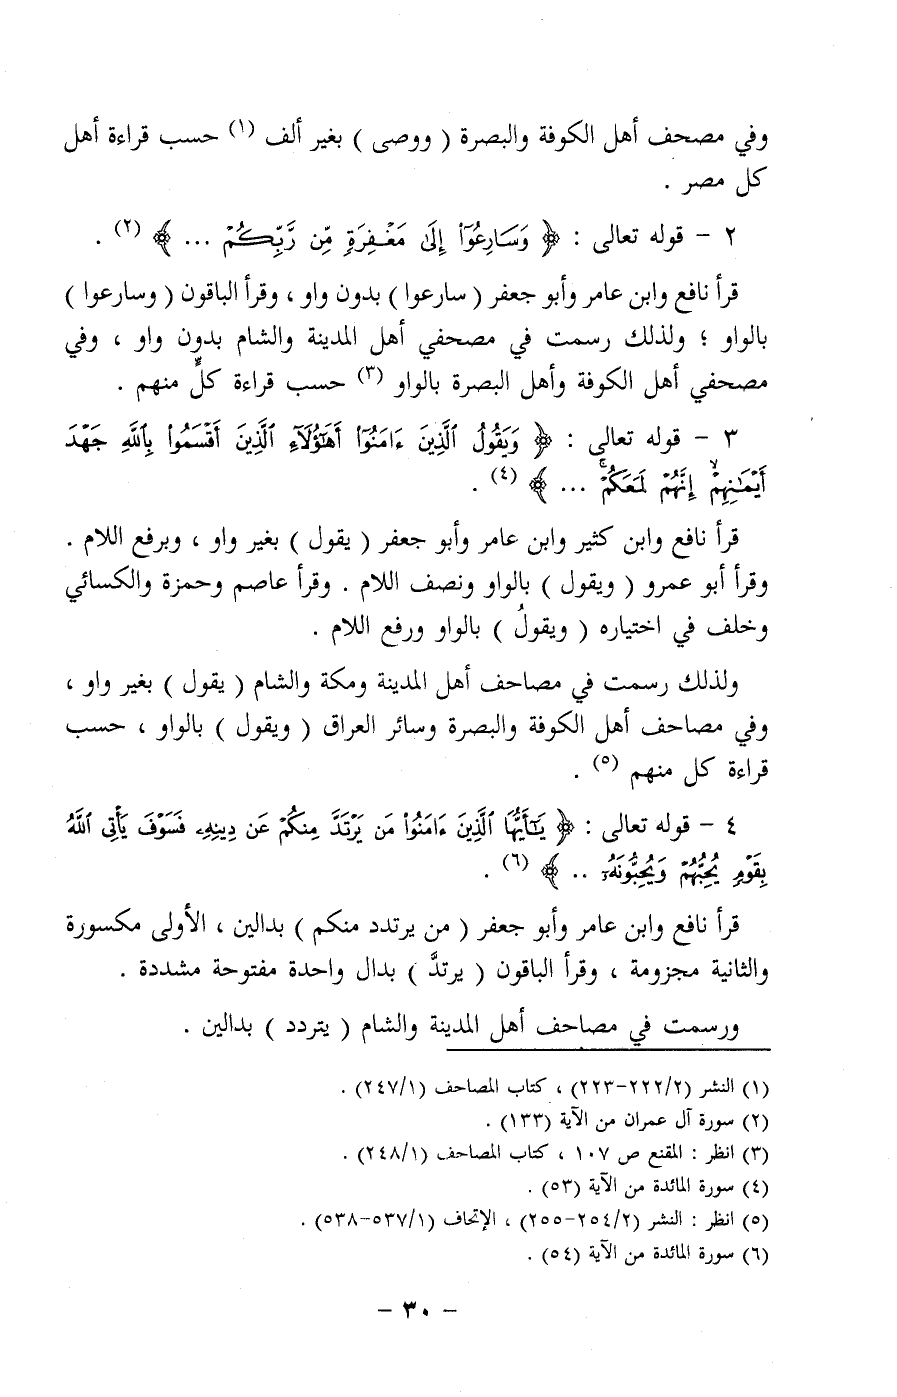 وفي مصحف أهل الكوفة والبصرة ( ووصى ) بغير ألف (١) حسب قراءة أهل
كل مصر .
٢ - قوله تعالى : ﴿ وَسَارِعُوٓا۟ إِلَىٰ مَغْفِرَةٍ مِّن رَّبِّكُمْ ... ﴾ (٢) .
قرأ نافع وابن عامر وأبو جعفر ( سارعوا ) بدون واو ، وقرأ الباقون ( وسارعوا )
بالواو ؛ ولذلك رسمت في مصحفي أهل المدينة والشام بدون واو ، وفي
مصحفي أهل الكوفة وأهل البصرة بالواو (٣) حسب قراءة كلٍّ منهم .
٣ - قوله تعالى : ﴿ وَيَقُولُ ٱلَّذِينَ ءَامَنُوٓا۟ أَهَٰٓؤُلَآءِ ٱلَّذِينَ أَقْسَمُوا۟ بِٱللَّهِ جَهْدَ
أَيْمَٰنِهِمْ ۙ إِنَّهُمْ لَمَعَكُمْ ۚ ... ﴾ (٤) .
قرأ نافع وابن كثير وابن عامر وأبو جعفر ( يقول ) بغير واو ، وبرفع اللام .
وقرأ أبو عمرو ( ويقول ) بالواو ونصف اللام . وقرأ عاصم وحمزة والكسائي
وخلف في اختياره ( ويقولُ ) بالواو ورفع اللام .
ولذلك رسمت في مصاحف أهل المدينة ومكة والشام ( يقول ) بغير واو ،
وفي مصاحف أهل الكوفة والبصرة وسائر العراق ( ويقول ) بالواو ، حسب
قراءة كل منهم (٥) .
٤ - قوله تعالى : ﴿ يَٰٓأَيُّهَا ٱلَّذِينَ ءَامَنُوا۟ مَن يَرْتَدَّ مِنكُمْ عَن دِينِهِۦ فَسَوْفَ يَأْتِى ٱللَّهُ
بِقَوْمٍ يُحِبُّهُمْ وَيُحِبُّونَهُۥٓ .. ﴾ (٦) .
قرأ نافع وابن عامر وأبو جعفر ( من يرتدد منكم ) بدالين ، الأولى مكسورة
والثانية مجزومة ، وقرأ الباقون ( يرتدَّ ) بدال واحدة مفتوحة مشددة .
ورسمت في مصاحف أهل المدينة والشام ( يتردد ) بدالين .
(١) النشر (٢٢٢/٢-٢٢٣) ، كتاب المصاحف (٢٤٧/١) .
(٢) سورة آل عمران من الآية (١٣٣) .
(٣) انظر : المقنع ص ١٠٧ ، كتاب المصاحف (٢٤٨/١) .
(٤) سورة المائدة من الآية (٥٣) .
(٥) انظر : النشر (٢٥٤/٢-٢٥٥) ، الإتحاف (٥٣٧/١-٥٣٨) .
(٦) سورة المائدة من الآية (٥٤) .
- ٣٠ -